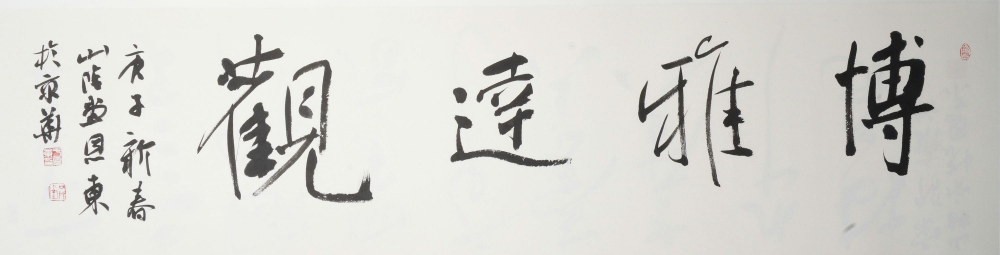 博雅達觀
庚子新春
山陰恩東
於京華